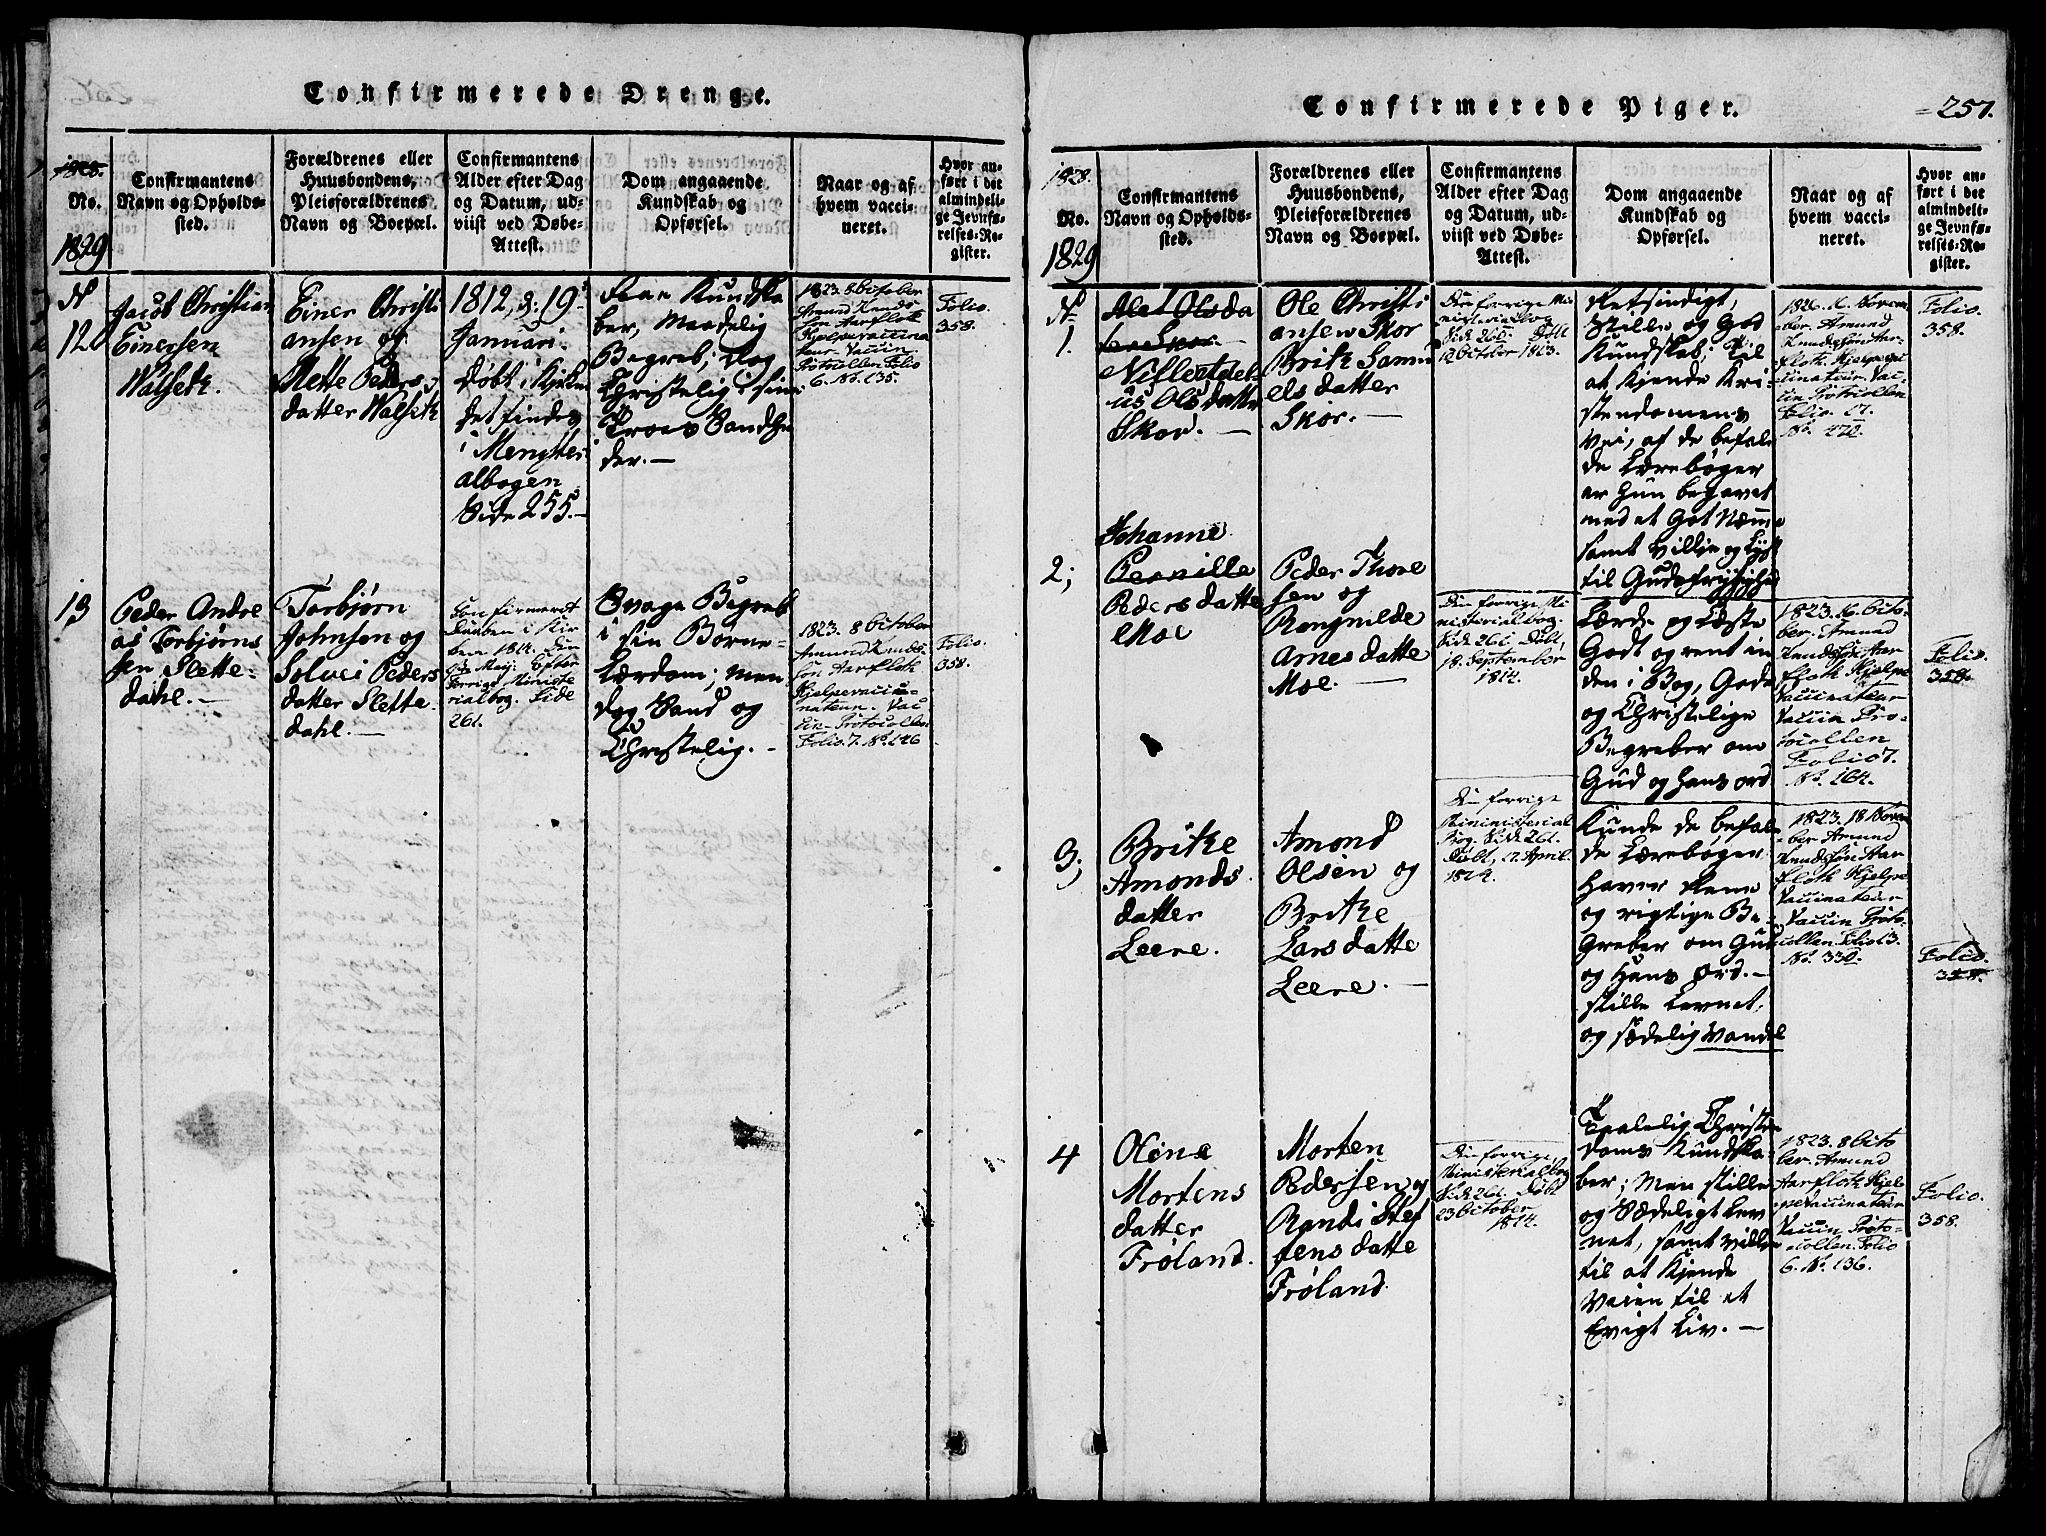 Confirmerede Drenge.
1828.
No.
1829
Confirmantens
Navn og Opholds-
sted.
Forældrenes eller
Huusbondens,
Pleieforældrenes
Navn og Boepæl.
Confirmantens
Alder efter Dag
og Datum, ud-
viist ved Døbe-
Attest.
Dom angaaende
Kundskab og
Opførsel.
Naar og af
hvem vacci-
neret.
Hvor an-
ført i det
almindeli-
ge Jevnfø-
relses-Re-
gister.
N
12
Jacob Christian
Einersen
Walseth.
Einer Christi
ansen og
Mette Peders
datter Walseth
1812, d: 19
Januari.
døbt i Kirken
det findes
i Menyster
albogen
Side 255.-
Faae Kundska
ber, Maadelig
Begreb; dog
Christelig i sine
Troes Sandhe
der.-
1823. 8 October
Amund Knud
sen Aarfloth
Hjelpevaccina
teur. Vaccin
Protocollen Folio
6. No. 135.
Folio.
358.
13
Peder Andre
as Torbjørns
sen Slette-
dahl.-
Torbjørn
Johnsen og
Solvei Peders
datter Slette
dahl.-
Confirmeret
Daaben i Kir
ken 1814. den
Maij. Efter
Forrige Ministe
rialbog. Side
261.
Svage Begreb
i sin Børne-
Lærdom; men
dog Sand og
Christelig.-
1823. 8 October
Amund Knud
sen Aarfloth
Hjelpevaccin-
nateur. Vac
cin-Protocollen
Folio. 7. No. 146
Folio.
358.
Confirmerede Piger.
257.
1828.
No.
1829
Confirmantens
Navn og Opholds-
sted.
Forældrenes eller
Huusbondens,
Pleieforældrenes
Navn og Boepæl.
Confirmantens
Alder efter Dag
og Datum, ud-
viist ved Døbe-
Attest.
Dom angaaende
Kundskab og
Opførsel.
Naar og af
hvem vacci-
neret.
Hvor an-
ført i det
almindeli-
ge Jevnfø-
relses-Re-
gister.
N
1.
Olsda
Skor.-
Olsdatter
Skor.-
Ole Christi
ansen Skor
Brith Samu
els datter
Skor.-
Den forrige Mi
nisterialbog
Side 260. Døbt
12 October 1813.
Retsindigt,
Stille og God
Kundskab; til
at Kjende Kri
stendomens
Vei, af de befale
de Lærebøger
er hun begavet
med et Got Nemme
samt Villje og Lyst
til Gudsfrygtighed
1826. Novem
ber. Amund
Knudsen Aar-
floth. Hjelpevac
cinateur. Vac
cin Protocollen
Folio. 17.
No. 470.
Folio.
358.
2;
Johanne
Pernille
Peders datter
Moe
Peder Thore
sen og
Rangnilde
Arnes datter
Moe.-
Den forrige Mi
nisterialbog.
Side 261. Døbt,
18. September
1814.
Lærde og Læste
Godt og rent in
den i Bog, Gode
og Christelige
Begreber om
Gud og hans ord
1823. 16. Octo-
ber. Amund
Knudsen Aar
floth Hjelpe
Vaccinateur
Vaccin Pro-
tocollen
Folio 7.
No. 164.
Folio.
358.
3;
Brithe
Amonds
datter
Leere.
Amond
Olsen og
Brithe
Lars datte
Leere.-
Den forrige
Ministerial
Bog. Side 261.
Døbt, 17. April.
1814.
Kunde de befale
de Lærebøger.
haver skene
og rigtige Be-
Greber om Gud
og Hans ord.-
stille Levnet,
og sædelig Vandel
1823. 18 Novem
ber Amund
Knudsøn Aar
floth Hjelpe
Vaccinateur
Vaccin Proto-
collen. Folio 13.
No. 330.
Folio.
358.
4
Oline
Mortens
datter
Frøland.
Morten
Pedersen og
Randi Stef
fens datte
Frøland.
Den forrige
Ministerialbog
Side 261. Døbt
23 October
1814.
Taalelig Christen
doms Kundska
ber; Men stille
og Sædeligt Lev
net, samt Villie
til at Kjende
Veien til et
Evigt Liv.-
1823. 8 Octo
ber. Amund
Aarfloth Hjel
pevaccinateur
Vaccin Proto-
collen. Folio
6. No. 136.
Folio.
358.